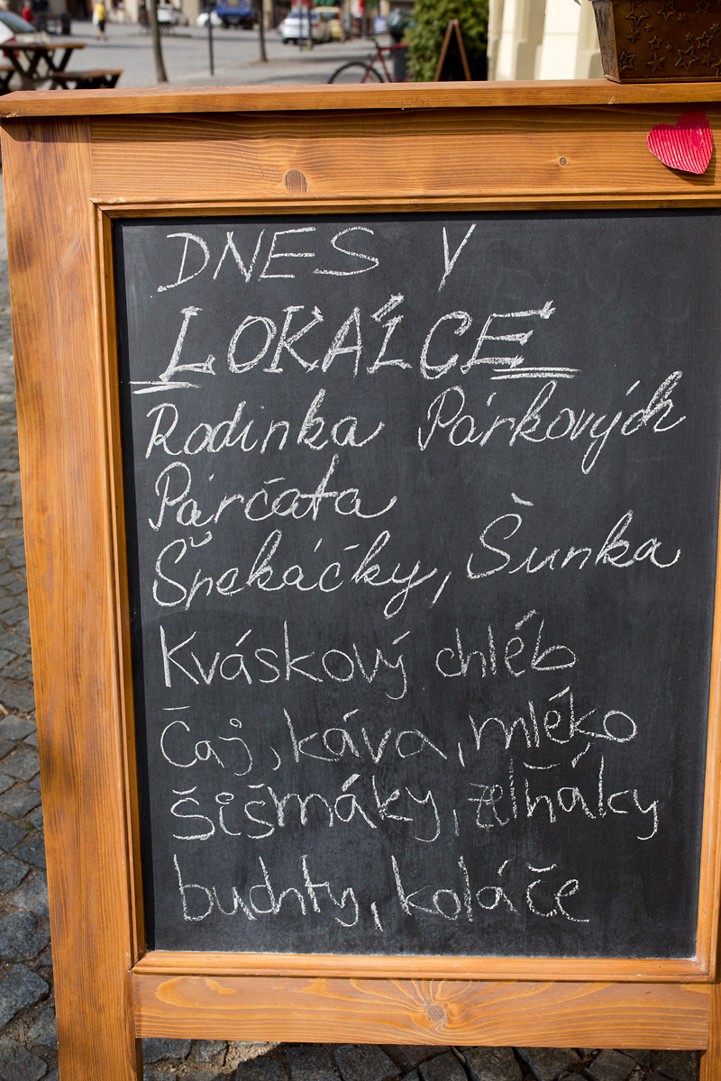 DNES V
LOKÁLCE
Rodinka Párkových
Párčata
Špekáčky, Šunka
Kváskový chléb
Čaj, káva, mléko
šišmáky, zelňáky
buchty, koláče